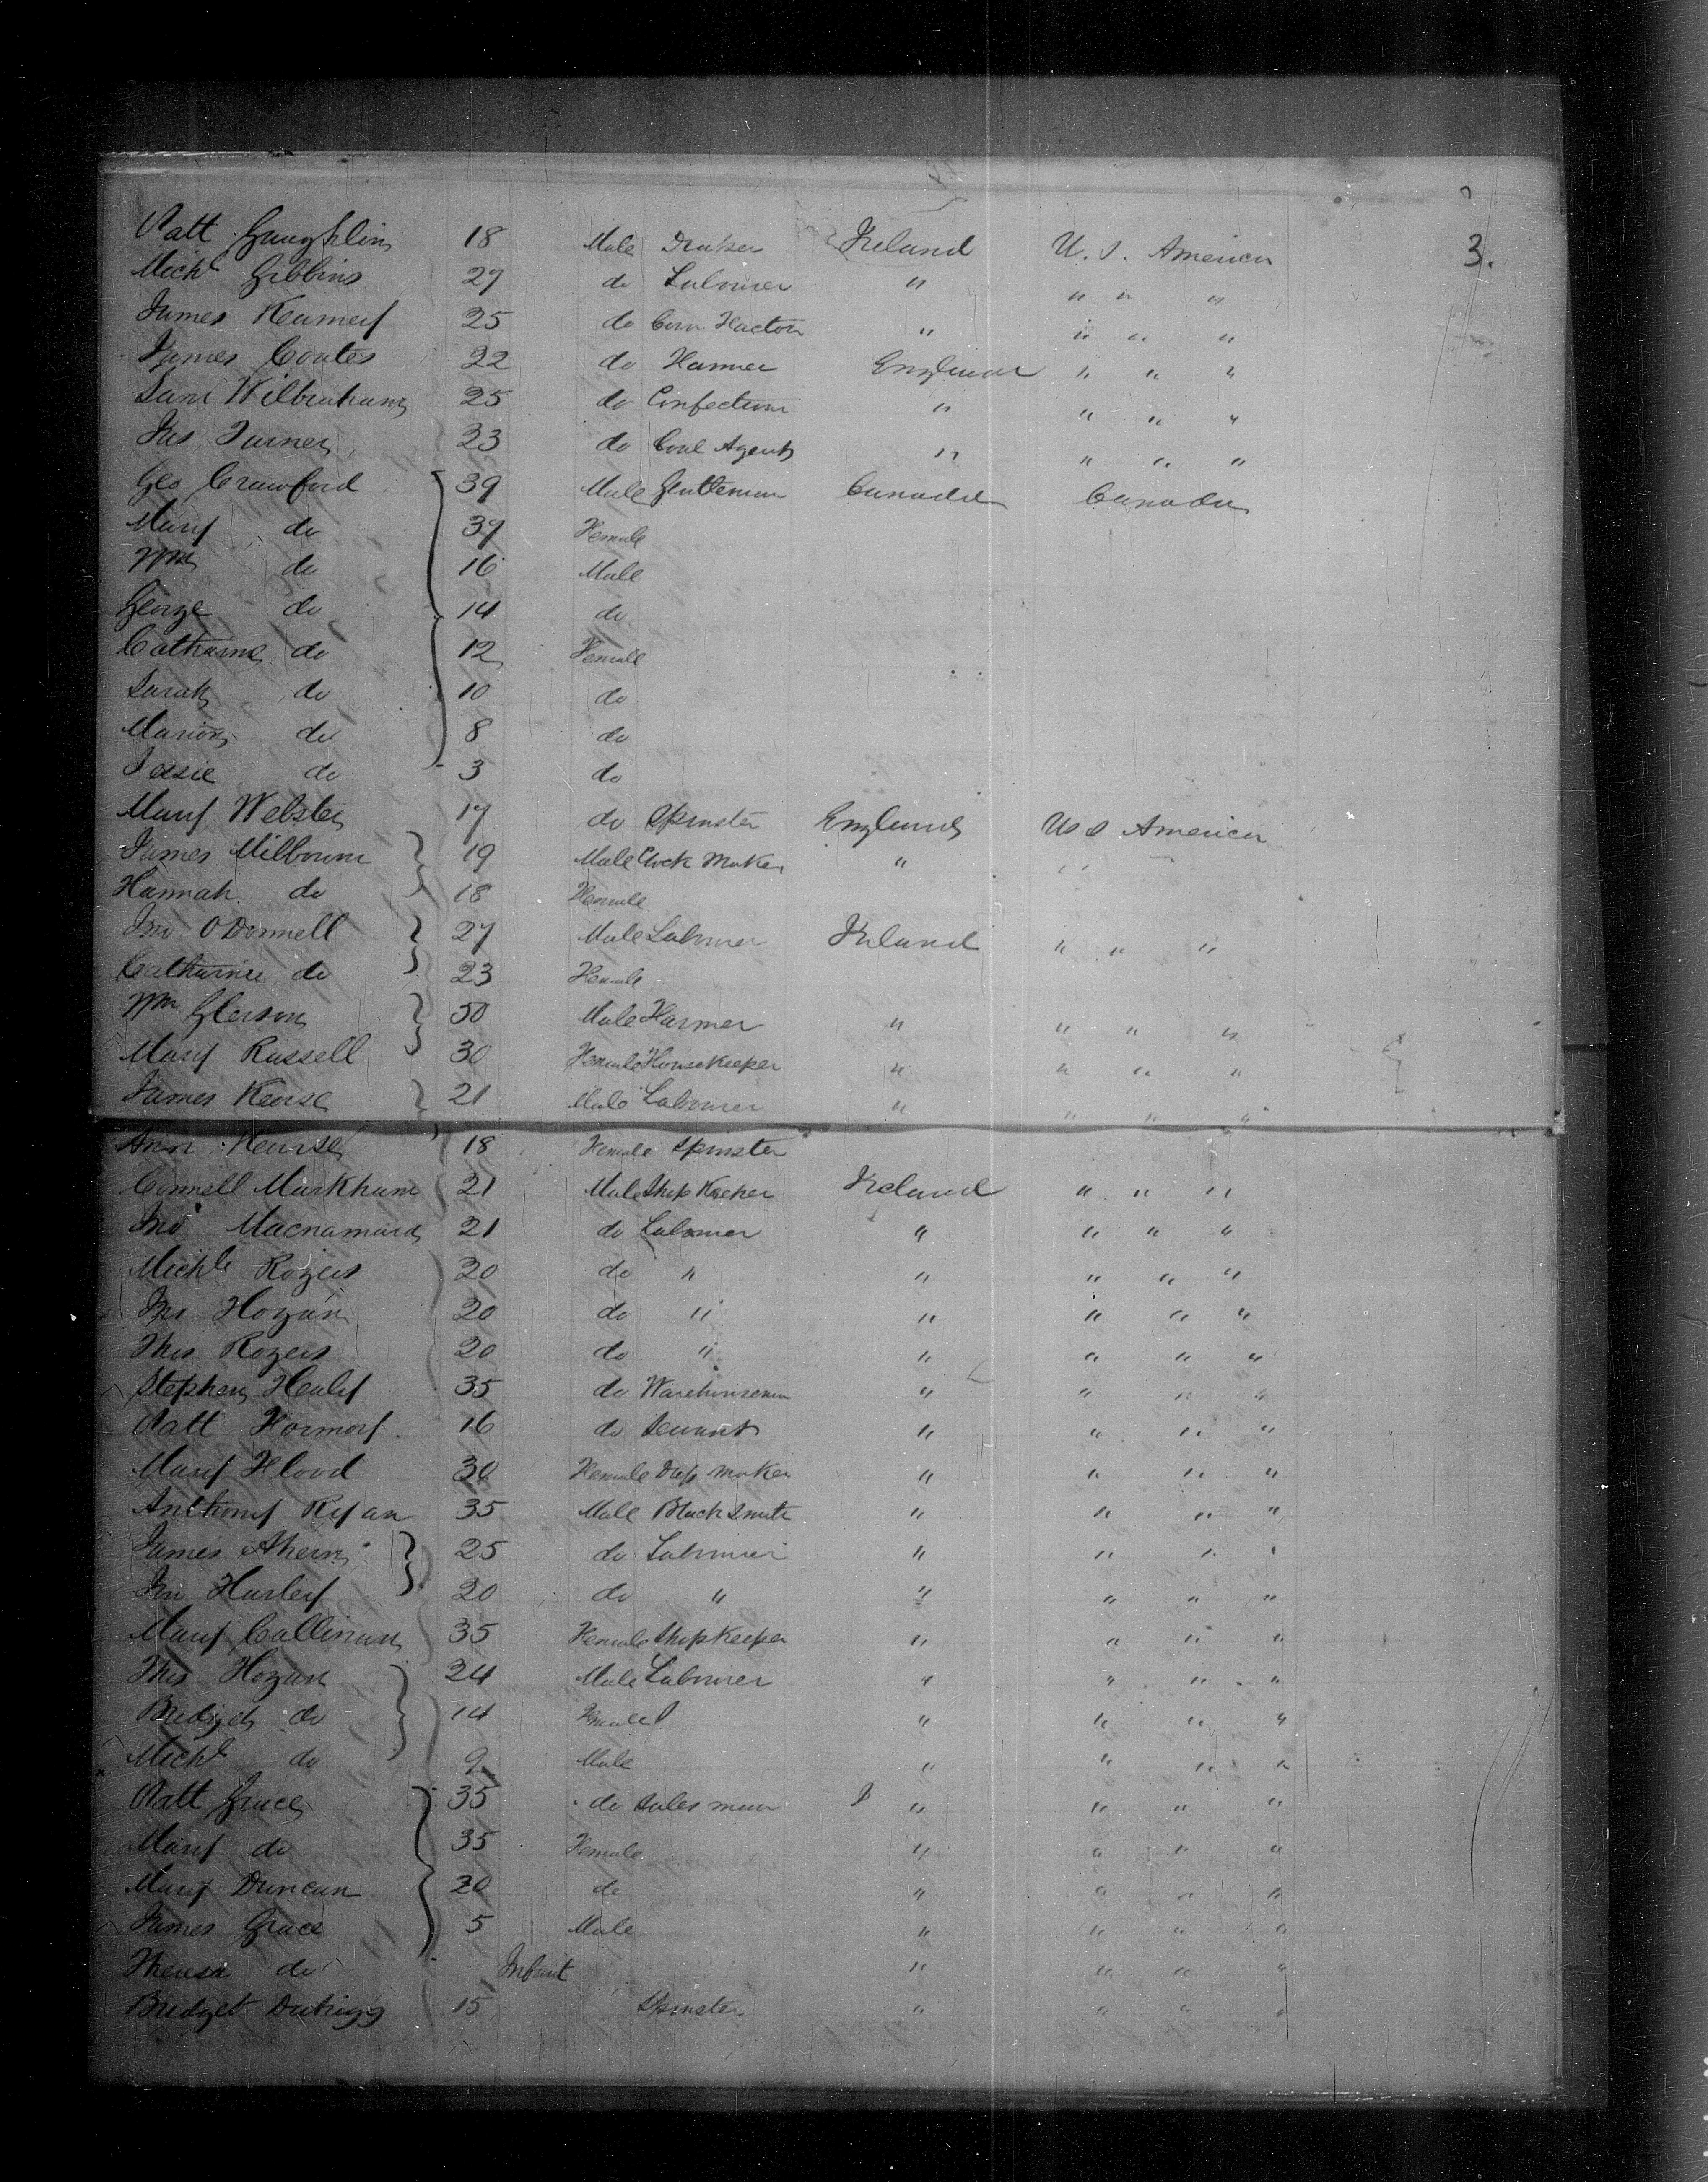 3.
Patt Gaughlin 18 Male Draper Ireland U. S. America
Michl Gibbins 27 do Labourer " " " "
James Kearney 25 do Corn Factor " " " "
James Coates 22 do Farmer England " " "
Saml Wilbraham 25 do Confectioner " " " "
Jas Turner 23 do Coal Agent " " " "
Geo Crawford 39 Male Gentleman Canada Canada
Mary do 39 Female
Wm do 16 Male
George do 14 do
Catharine do 12 Female
Sarah do 10 do
Marion do 8 do
Jessie do 3 do
Mary Webster 17 do Spinster England U S America
James Milbourne 19 Male Clock Maker " "
Hannah do 18 Female
Jno O'Donnell 27 Male Labourer Ireland " " "
Catharine do 23 Female
Wm Gleeson 50 Male Farmer " " " "
Mary Russell 30 Female Housekeeper " " " "
James Kearse 21 Male Labourer " " " "
Ann Kearse 18 Female Spinster
Connell Markham 21 Male Shop Keeper Ireland " " "
Jno Macnamara 21 do Labourer " " " "
Michl Rogers 20 do " " " " "
Jas Hogan 20 do " " " " "
Thos Rogers 20 do " " " " "
Stephen Healy 35 do Warehouseman " " " "
Patt Hormoy 16 do Servant " " " "
Mary Flood 30 Female Dress Maker " " " "
Anthony Ryan 35 Male Black Smith " " " "
James Ahern 25 do Labourer " " " "
Jno Hurley 20 do " " " " "
Mary Callinan 35 Female Shop Keeper " " " "
Thos Hogan 24 Male Labourer " " " "
Bridget do 14 Female " " " "
Michl do 9 Male " " " "
Patt Grace 35 do Sales man " " " "
Mary do 35 Female " " " "
Mary Duncan 20 do " " " "
James Grace 5 Male " " " "
Theresa do Infant " " " "
Bridget 15 Spinster " " " "